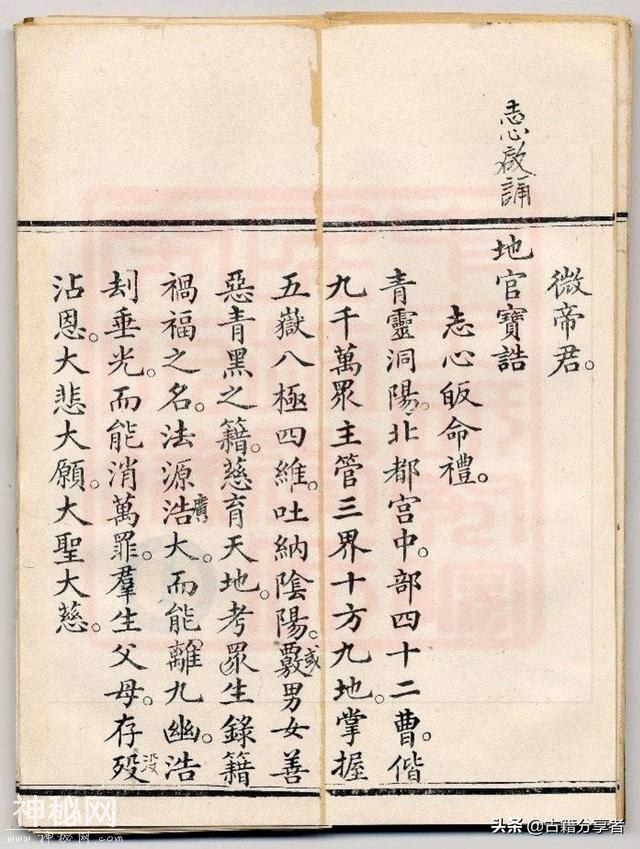 志心啟誦
微帝君。
地官寶誥
志心皈命禮。
青靈洞陽。北都宮中。部四十二曹。偕
九千萬眾主管三界十方九地。掌握
五嶽八極四維。吐納陰陽。覈男女善
惡青黑之籍。慈育天地。考眾生錄籍
禍福之名。法源浩大。而能離九幽。浩
廣
刦垂光。而能消萬罪。羣生父母。存殁
沒
沾恩。大悲大願。大聖大慈。
神秘网
www.神秘网.com
头条 @古籍分享者